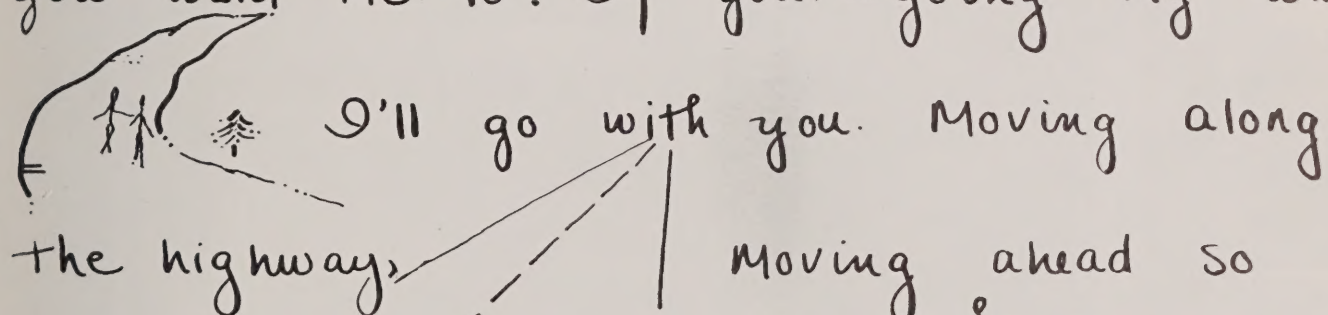 I'll go with you. Moving along
the highway, Moving ahead so